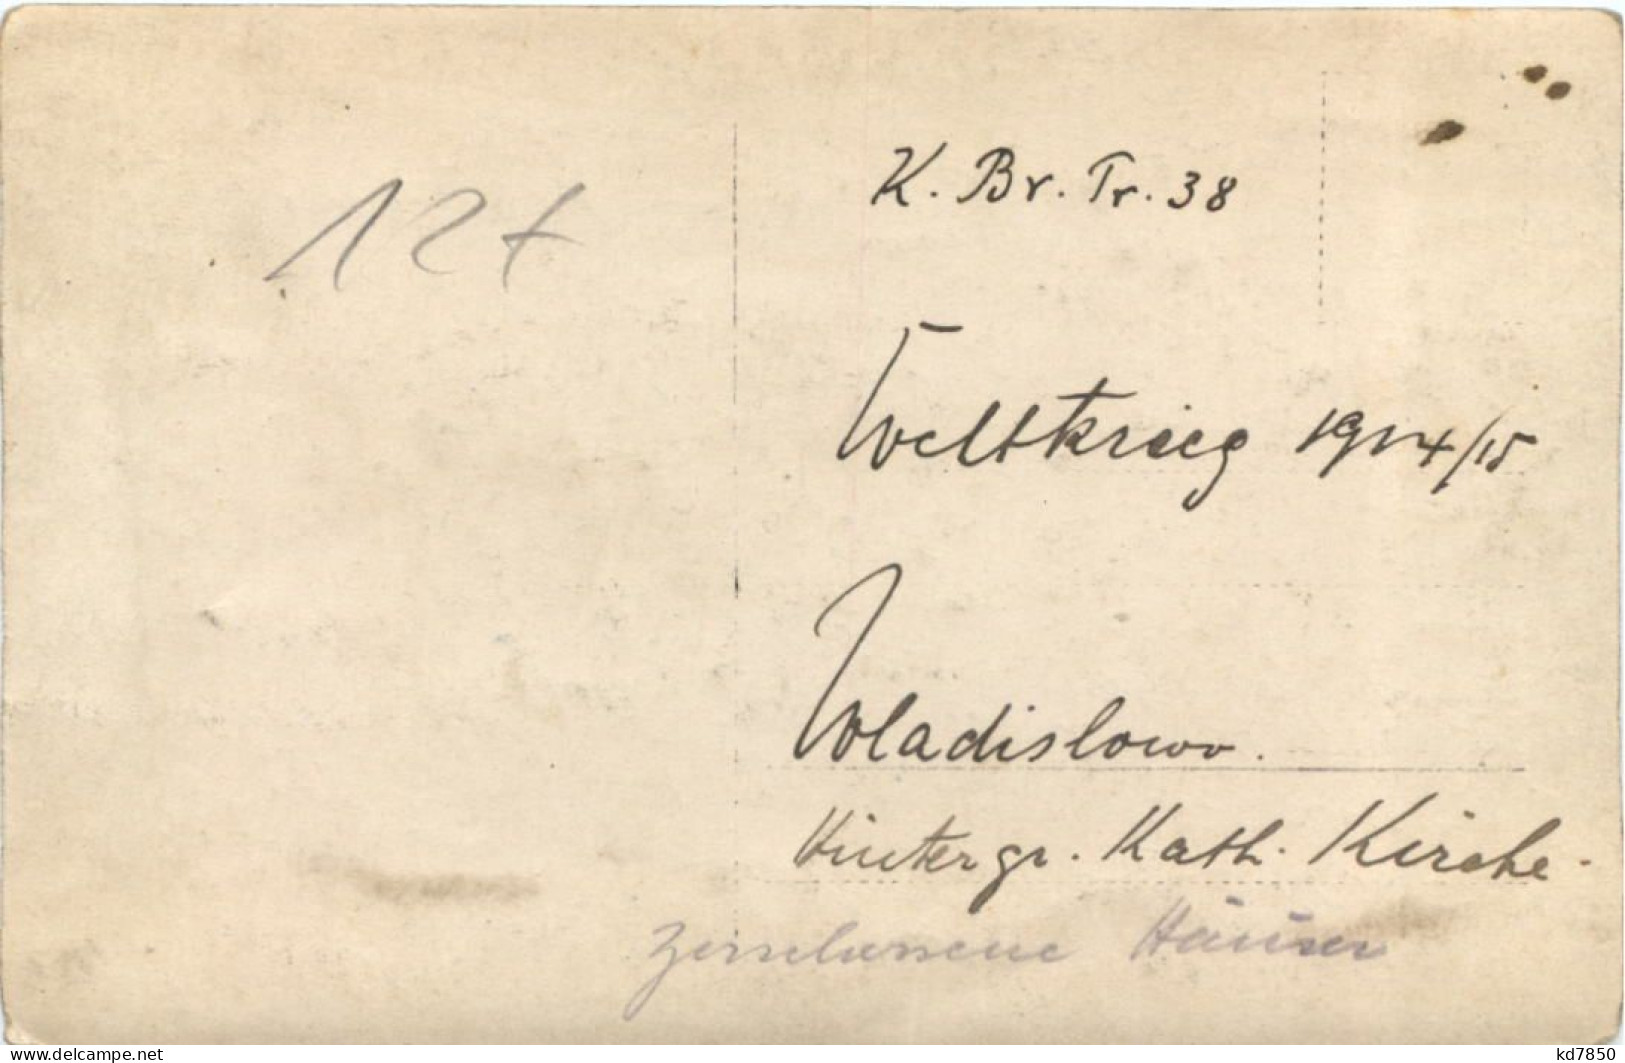 12t
K. Br. Tr. 38
Weltkrieg 1914/15
Wladislowo.
Hintergr. Kath. Kirche.
Zerschossene Häuser
www.delcampe.net
kd7850